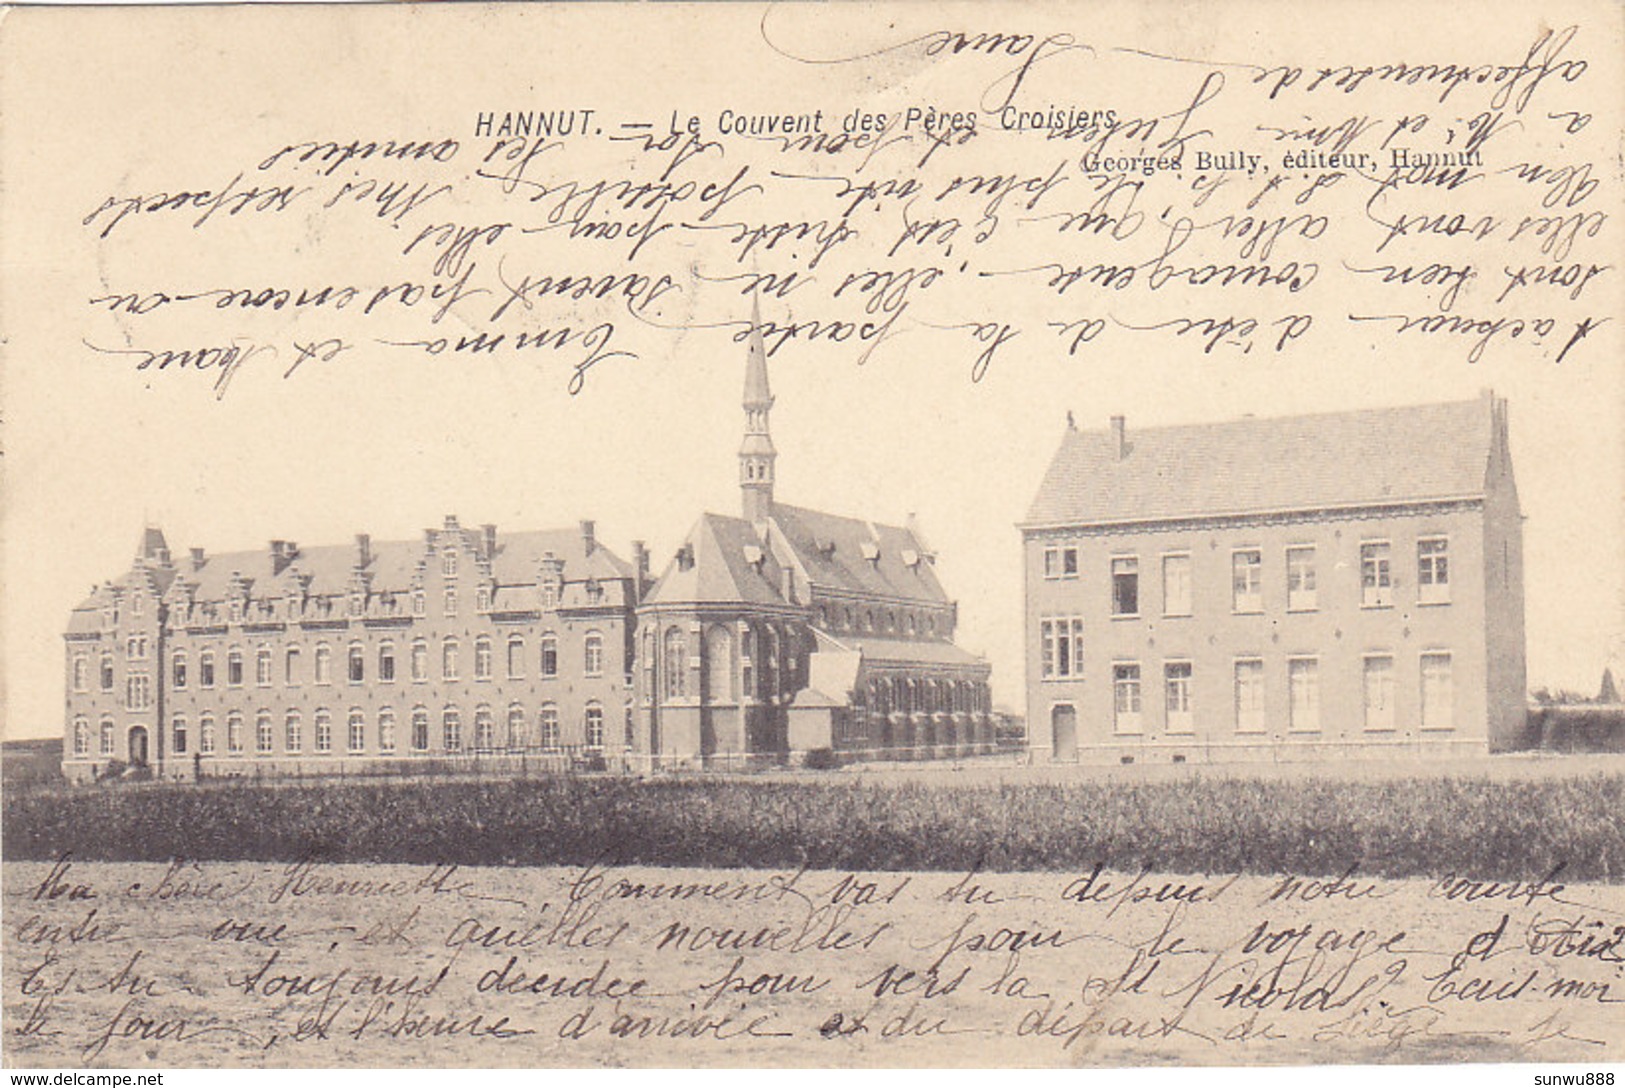 HANNUT. — Le Couvent des Pères Croisiers
Georges Bully, éditeur, Hannut
Ma chère Henriette, Comment vas tu depuis notre courte
entre vue, et quelles nouvelles pour le voyage d
Es tu toujours décidée pour vers la St Nicolas? Ecris-moi
le jour, et l'heure d'arrivée et du départ de Liège je
tacherai d'être de la partie Emma et Marie
sont bien courageuse, elles ne savent pas encore où
elles vont aller, que c'est triste pour elles
Un mot s. t. p. le plus vite possible, Mes respects
à Mr et Mme et pour toi les amitiés
affectueuses de Jane
delcampe.net
sunwu888